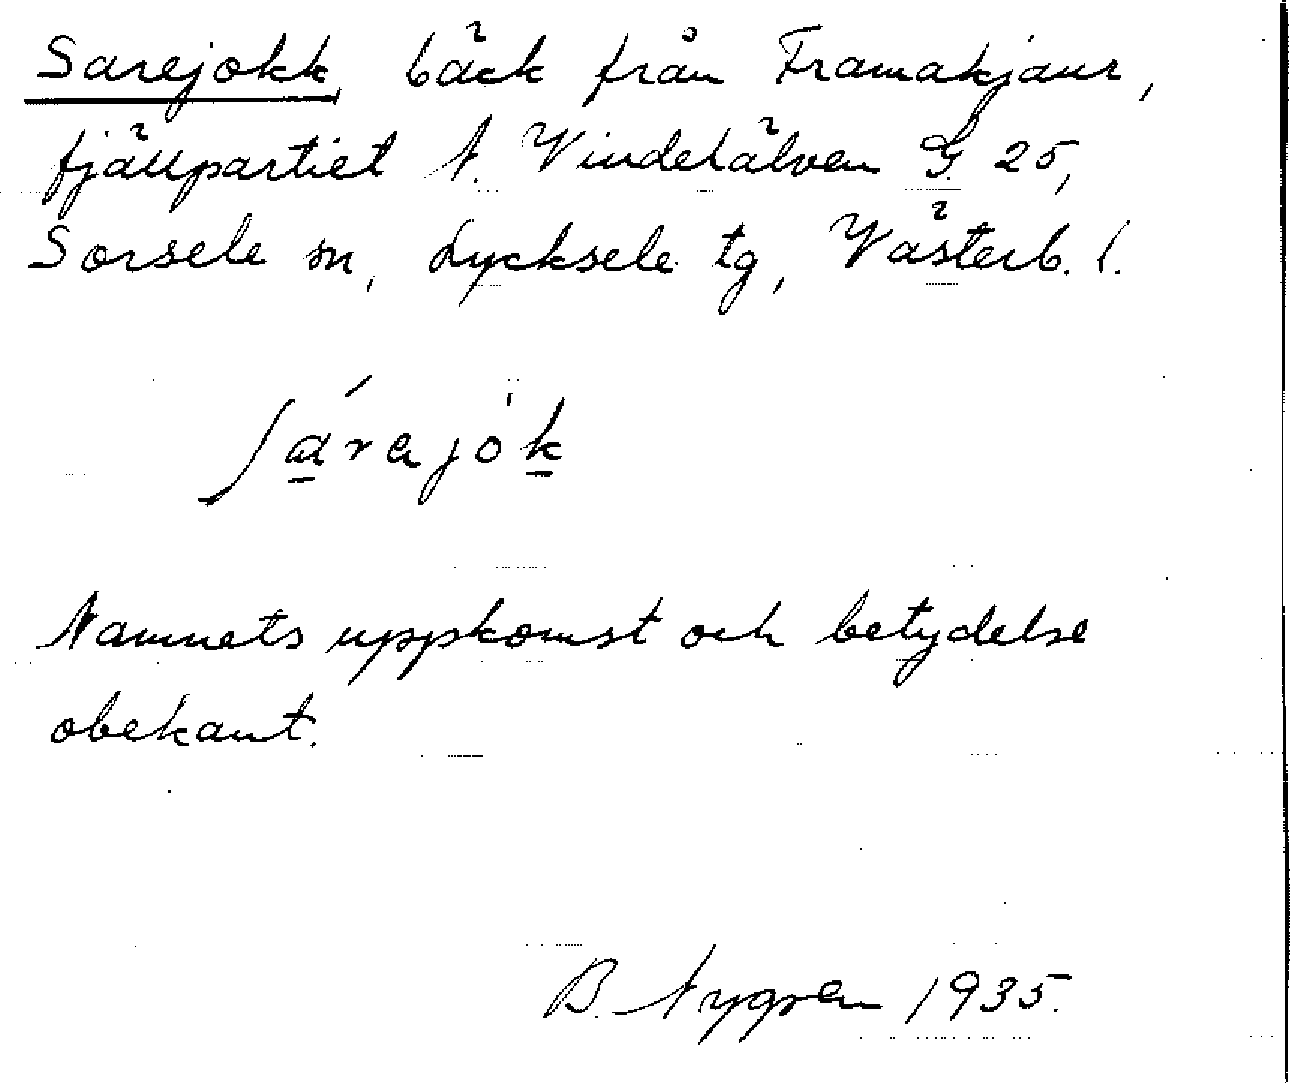 Sarejokk, bäck från Framakjaur,
fjällpartiet N. Vindelälven G. 25,
Sorsele sn, Lycksele tg, Västerb. l.
ʃa̲´rajo'k̲
Namnets uppkomst och betydelse
obekant.
B. Nygren 1935.